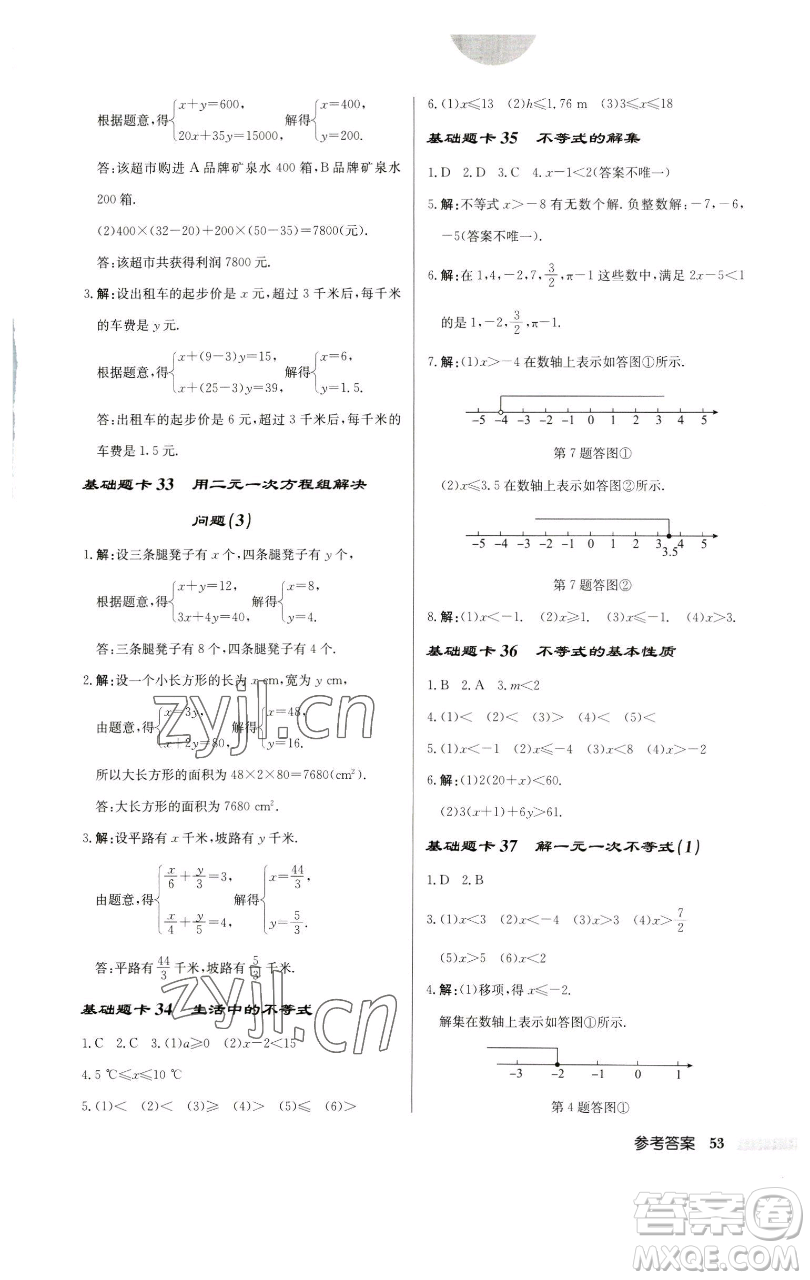 根据题意,得{x+y=600, 20x+35y=15000, 解得{x=400, y=200.
答:该超市购进 A 品牌矿泉水 400 箱,B 品牌矿泉水
200 箱.
(2)400×(32-20)+200×(50-35)=7800(元).
答:该超市共获得利润 7800 元.
3.解:设出租车的起步价是 x 元,超过 3 千米后,每千米
的车费是 y 元.
根据题意,得{x+(9-3)y=15, x+(25-3)y=39, 解得{x=6, y=1.5.
答:出租车的起步价是 6 元,超过 3 千米后,每千米的
车费是 1.5 元.
基础题卡 33 用二元一次方程组解决
问题(3)
1.解:设三条腿凳子有 x 个,四条腿凳子有 y 个,
根据题意,得{x+y=12, 3x+4y=40, 解得{x=8, y=4.
答:三条腿凳子有 8 个,四条腿凳子有 4 个.
2.解:设一个小长方形的长为 x cm,宽为 y cm,
由题意,得{x=3y, x+2y=80, 解得{x=48, y=16.
所以大长方形的面积为 48×2×80=7680(cm²).
答:大长方形的面积为 7680 cm².
3.解:设平路有 x 千米,坡路有 y 千米.
由题意,得{x/6+y/3=3, x/4+y/5=4, 解得{x=44/3, y=5/3.
答:平路有 44/3 千米,坡路有 5/3 千米.
基础题卡 34 生活中的不等式
1.C 2.C 3.(1)a≥0 (2)x-2<15
4.5 ℃≤x≤10 ℃
5.(1)< (2)< (3)≥ (4)> (5)< (6)>
6.(1)x≤13 (2)h≤1.76 m (3)3≤x≤18
基础题卡 35 不等式的解集
1.D 2.D 3.C 4.x-1<2(答案不唯一)
5.解:不等式 x>-8 有无数个解.负整数解:-7,-6,
-5(答案不唯一).
6.解:在 1,4,-2,7,3/2,π-1 这些数中,满足 2x-5<1
的是 1,-2,3/2,π-1.
7.解:(1)x>-4 在数轴上表示如答图①所示.
-5 -4 -3 -2 -1 0 1 2 3 4 5
第 7 题答图①
(2)x≤3.5 在数轴上表示如答图②所示.
-5 -4 -3 -2 -1 0 1 2 3 4 5
3.5
第 7 题答图②
8.解:(1)x<-1. (2)x≥1. (3)x≤-1. (4)x>3.
基础题卡 36 不等式的基本性质
1.B 2.A 3.m<2
4.(1)< (2)< (3)> (4)< (5)<
5.(1)x<-1 (2)x<4 (3)x>5 (4)x>-2
6.解:(1)2(20+x)<60.
(2)3(x+1)+6y>61.
基础题卡 37 解一元一次不等式(1)
1.D 2.B
3.(1)x<3 (2)x<-4 (3)x<6 (4)x>7/2
(5)x>5 (6)x>2
4.解:(1)移项,得 x≤-2.
解集在数轴上表示如答图①所示.
-3 -2 -1 0 1
第 4 题答图①
参考答案 53
zyjl.cn
zyjl.cn
答案圈
MXQE.COM